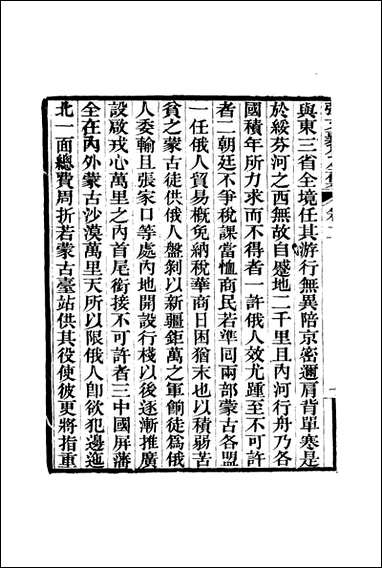 卷二
與東三省全境任其游行無異陪京密邇肩背單寒是
於綏芬河之西無故自蹙地二千里且內河行舟乃各
國積年所力求而不得者一許俄人效尤踵至不可許
者二朝廷不爭稅課當恤商民若準同兩部蒙古各盟
一任俄人貿易概免納稅華商日困猶末也以積弱苦
貧之蒙古徒供俄人盤剝以新疆鉅萬之軍餉徒爲俄
人委輸且張家口等處內地開設行棧以後逐漸推廣
設啟戎心萬里之內首尾銜接不可許者三中國屏藩
全在內外蒙古沙漠萬里天所以限俄人卽欲犯邊迤
北一面總費周折若蒙古臺站供其役使彼更將指重